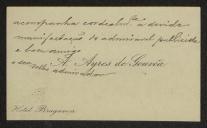 acompanha cordealm.te a devida
manifestação do admiravel publicista
e bom amigo
o seu velho admirador
A. Ayres de Gouvêa
Hotel Bragança